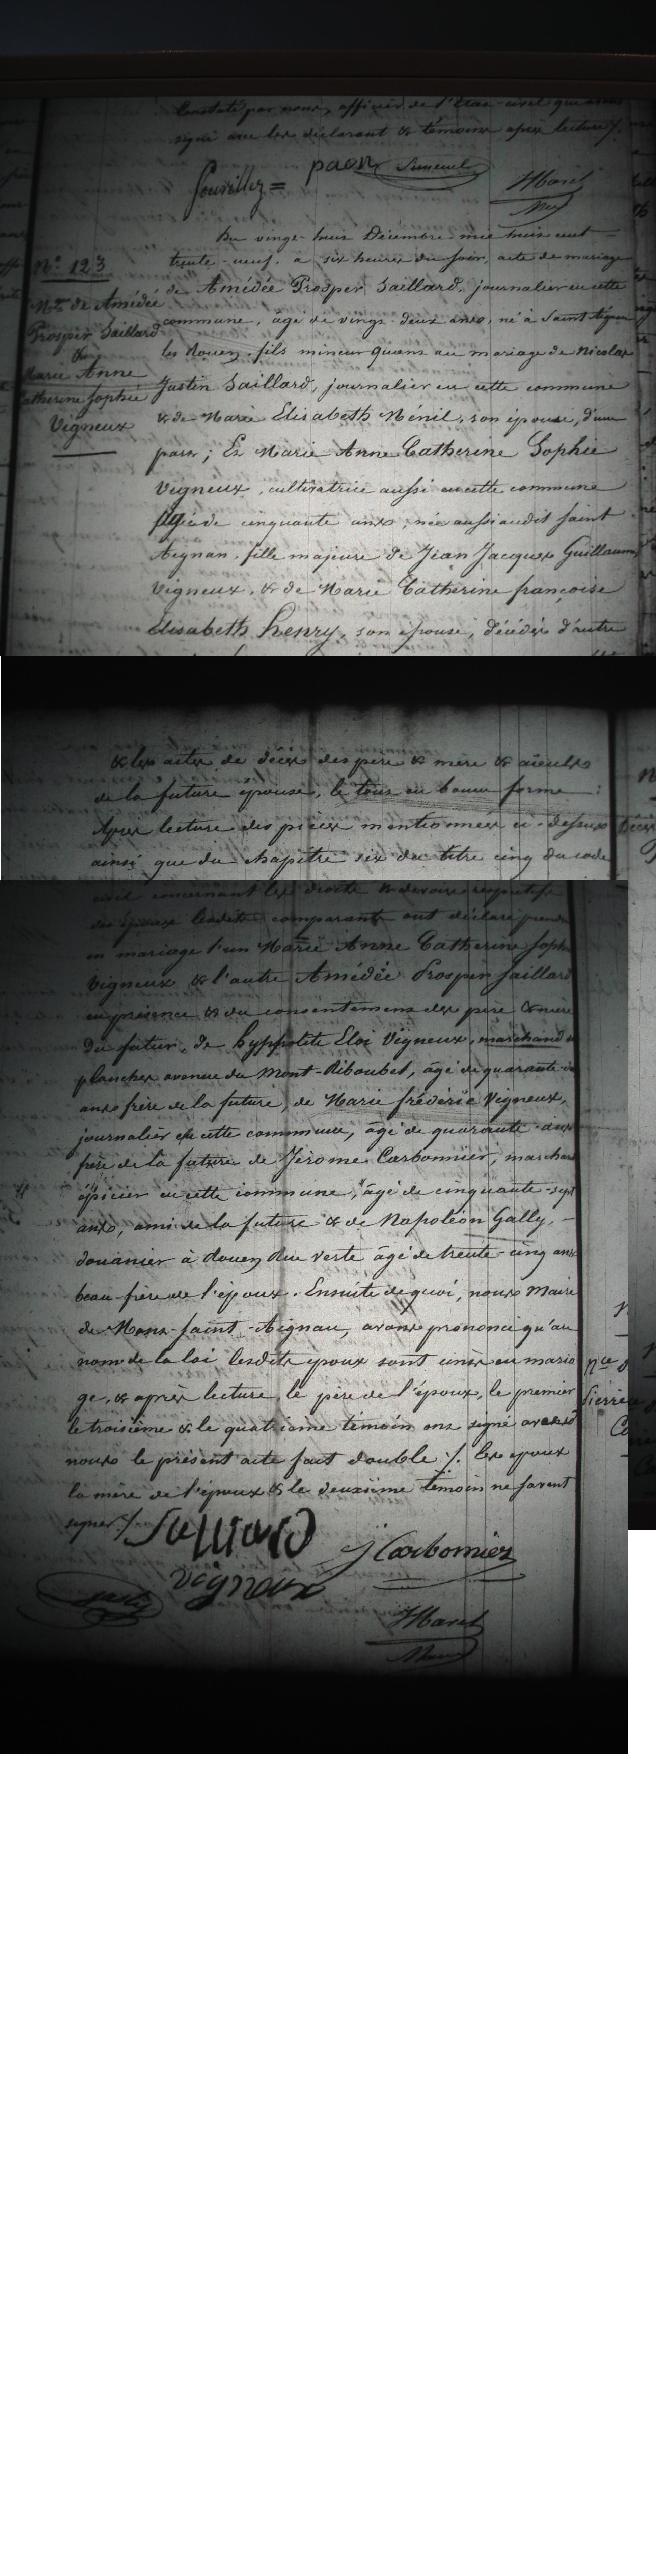 Constaté par nous, officier de l'état-civil qui avons
signé avec les déclarant & témoins après lecture /.
paon
HHarel
N.o 123
M.ge de Amédée
Prosper Saillard
Marie Anne
Catherine Sophie
Vigneux
Du vingt-huit Décembre mil huit cent
trente-neuf, à six heures du soir, acte de mariage
de Amédée Prosper Saillard, journalier en cette
commune, âgé de vingt-deux ans, né à Saint Aignan
les Rouen, fils mineur quant au mariage de Nicolas
Justin Saillard, journalier en cette commune
& de Marie Elisabeth Ménil, son épouse, d'une
part ; Et Marie Anne Catherine Sophie
Vigneux, cultivatrice aussi en cette commune
âgée de cinquante ans, née aussi audit Saint
Aignan, fille majeure de Jean Jacques Guillaume
Vigneux, & de Marie Catherine françoise
Elisabeth henry, son épouse, décédés d'autre
& les actes de décès des père & mère & aieuls
de la future épouse, le tout en bonne forme :
Après lecture des pièces mentionnées ci-dessus
ainsi que du chapitre six du titre cinq du code
civil concernant les droits & devoirs respectifs
des époux lesdits comparants ont déclaré prendre
en mariage l'un Marie Anne Catherine Soph
Vigneux & l'autre Amédée Prosper Saillard
en présence & du consentement des père & mère
du futur, de hyppolite Eloi Vigneux, marchand de
planches avenue du Mont-Riboudet, âgé de quarante
ans frère de la future, de Marie frédéric Vigneux,
journalier en cette commune, âgé de quarante-deux
frère de la future de Jérome Carbonnier, marchand
épicier en cette commune, âgé de cinquante-sept
ans, ami de la future & de Napoléon Gally,
douanier à Rouen Rue verte âgé de trente-cinq ans
beau-frère de l'époux. Ensuite de quoi, nous Maire
de Mont-Saint-Aignan, avons prononcé qu'au
nom de la loi lesdits époux sont unis en maria
ge, & après lecture, le père de l'époux, le premier
le troisième & le quatrième témoin ont signé avec
nous le présent acte fait double /. Les époux
la mère de l'époux & le deuxième témoin ne savent
signer /.
Salliard
J Carbonnier
vigneux
HHarel